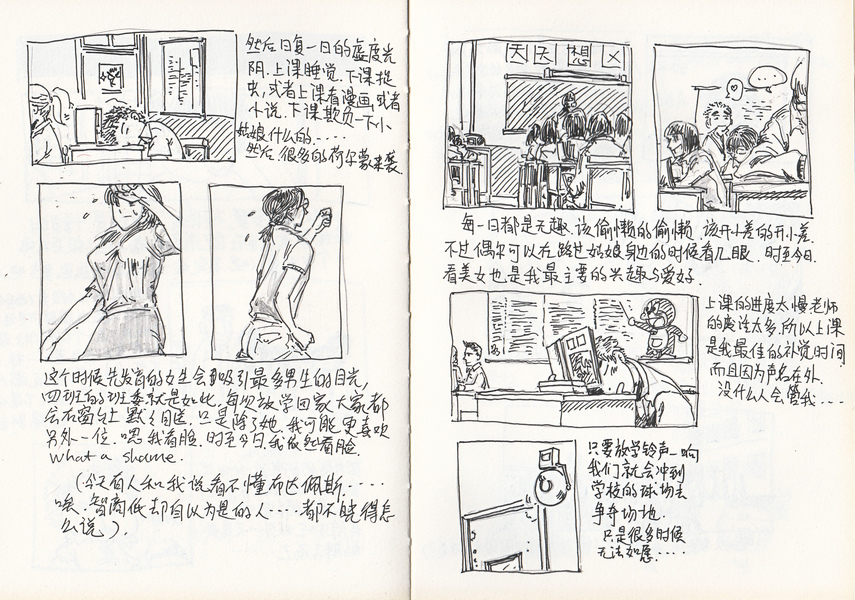 然后日复一日的虚度光
阴.上课睡觉.下课捉
虫,或者上课看漫画,或者
小说.下课欺负一下小
姑娘什么的....
然后.很多的荷尔蒙来袭
这个时候先发育的女生会吸引最多男生的目光,
四班的班委就是如此,每次放学回家大家都
会在窗台上默默目送.只是除了她.我可能更喜欢
另外一位.嗯.我看脸.时至今日,我依然看脸.
what a shame.
(今天有人和我说看不懂布达佩斯.....
唉.智商低却自以为是的人....都不晓得怎
么说).
天天想×
每一日都是无趣.该偷懒的偷懒 该开小差的开小差.
不过偶尔可以在路过姑娘身边的时候看几眼.时至今日.
看美女也是我最主要的兴趣与爱好.
上课的进度太慢老师
的废话太多.所以上课
是我最佳的补觉时间
而且因为声名在外.
没什么人会管我....
只要放学铃声一响
我们就会冲到
学校的球场去
争夺场地.
只是很多时候
无法如愿....